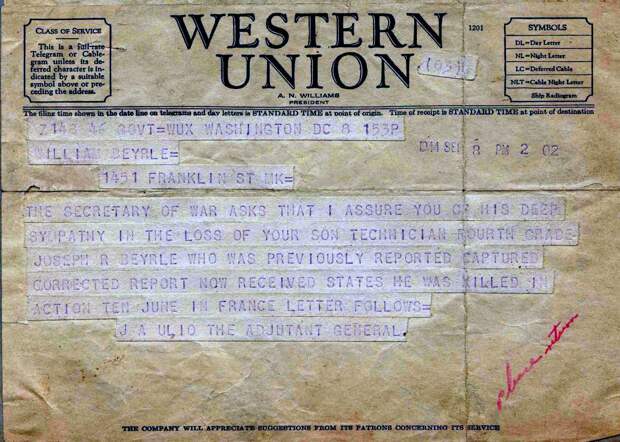 CLASS OF SERVICE
This is a full-rate
Telegram or Cable-
gram unless its de-
ferred character is in-
dicated by a suitable
symbol above or pre-
ceding the address.
WESTERN
UNION
A. N. WILLIAMS
PRESIDENT
1201
SYMBOLS
DL=Day Letter
NL=Night Letter
LC=Deferred Cable
NLT=Cable Night Letter
Ship Radiogram
The filing time shown in the date line on telegrams and day letters is STANDARD TIME at point of origin. Time of receipt is STANDARD TIME at point of destination
Z148 46 GOVT=WUX WASHINGTON DC 8 153P
WILLIAM BEYRLE=
1451 FRANKLIN ST MK=
SEP 8 PM 2 02
THE SECRETARY OF WAR ASKS THAT I ASSURE YOU OF HIS DEEP
SYMPATHY IN THE LOSS OF YOUR SON TECHNICIAN FOURTH GRADE
JOSEPH R BEYRLE WHO WAS PREVIOUSLY REPORTED CAPTURED
CORRECTED REPORT NOW RECEIVED STATES HE WAS KILLED IN
ACTION TEN JUNE IN FRANCE LETTER FOLLOWS=
J A ULIO THE ADJUTANT GENERAL.
please return
THE COMPANY WILL APPRECIATE SUGGESTIONS FROM ITS PATRONS CONCERNING ITS SERVICE